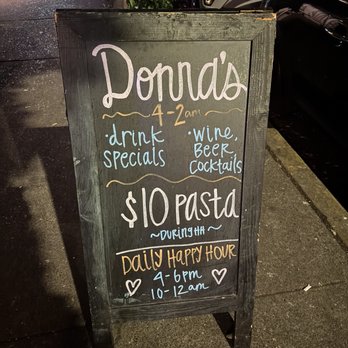 Donna's
4-2am
·drink specials
·wine, Beer, Cocktails
$10 pasta
~DURING HH~
DAILY HAPPY HOUR
4-6pm
10-12am